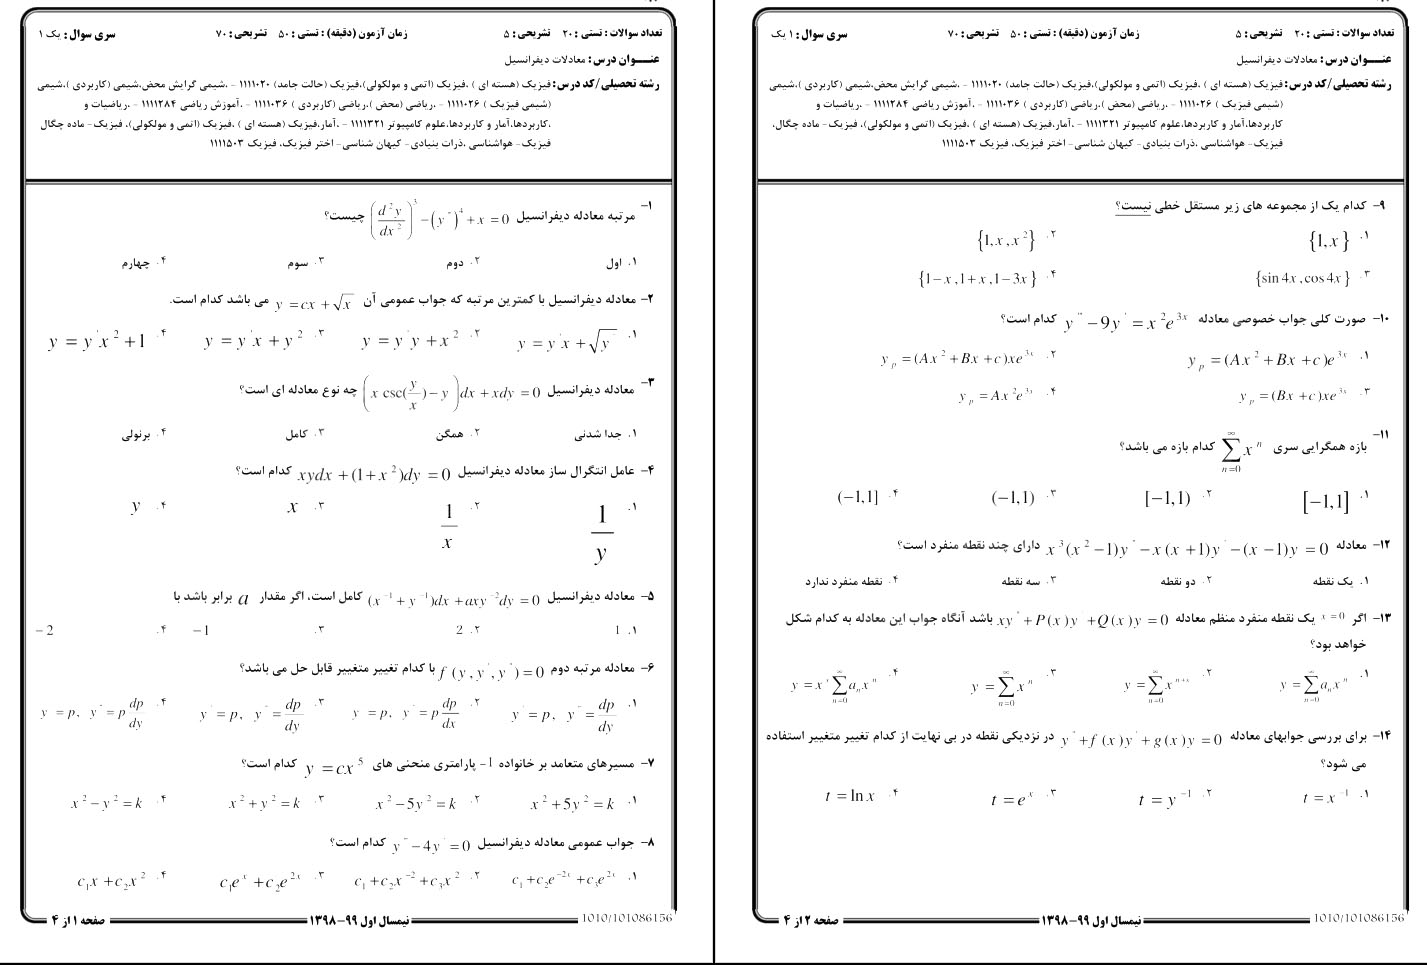 سری سوال : یک ۱    زمان آزمون (دقیقه) : تستی : ۵۰    تشریحی : ۷۰    تعداد سوالات : تستی : ۲۰    تشریحی : ۵
عنـــوان درس : معادلات دیفرانسیل
رشته تحصیلی/کد درس : فیزیک (هسته ای ) ،فیزیک (اتمی و مولکولی)،فیزیک (حالت جامد) ۱۱۱۱۰۲۰ - ،شیمی گرایش محض،شیمی (کاربردی )،شیمی
(شیمی فیزیک ) ۱۱۱۱۰۲۶ - ،ریاضی (محض )،ریاضی (کاربردی ) ۱۱۱۱۰۳۶ - ،آموزش ریاضی ۱۱۱۱۲۸۴ - ،ریاضیات و
،کاربردها،آمار و کاربردها،علوم کامپیوتر ۱۱۱۱۳۲۱ - ،آمار،فیزیک (هسته ای ) ،فیزیک (اتمی و مولکولی)، فیزیک- ماده چگال
فیزیک- هواشناسی ،ذرات بنیادی- کیهان شناسی- اختر فیزیک، فیزیک ۱۱۱۱۵۰۳
۱- مرتبه معادله دیفرانسیل (d²y/dx²)³ − (y'')⁴ + x = 0 چیست؟
۱. اول    ۲. دوم    ۳. سوم    ۴. چهارم
۲- معادله دیفرانسیل با کمترین مرتبه که جواب عمومی آن y = cx + √x می باشد کدام است.
۱. y = y'x + √y'    ۲. y = y'y + x²    ۳. y = y'x + y²    ۴. y = y'x² + 1
۳- معادله دیفرانسیل (x csc(y/x) − y)dx + xdy = 0 چه نوع معادله ای است؟
۱. جدا شدنی    ۲. همگن    ۳. کامل    ۴. برنولی
۴- عامل انتگرال ساز معادله دیفرانسیل xydx + (1+x²)dy = 0 کدام است؟
۱. 1/y    ۲. 1/x    ۳. x    ۴. y
۵- معادله دیفرانسیل (x⁻¹ + y⁻¹)dx + axy⁻²dy = 0 کامل است، اگر مقدار a برابر باشد با
۱. 1    ۲. 2    ۳. −1    ۴. −2
۶- معادله مرتبه دوم f(y, y', y'') = 0 با کدام تغییر متغییر قابل حل می باشد؟
۱. y' = p, y'' = dp/dy    ۲. y' = p, y'' = p dp/dx    ۳. y' = p, y'' = dp/dy    ۴. y' = p, y'' = p dp/dy
۷- مسیرهای متعامد بر خانواده 1- پارامتری منحنی های y = cx⁵ کدام است؟
۱. x² + 5y² = k    ۲. x² − 5y² = k    ۳. x² + y² = k    ۴. x² − y² = k
۸- جواب عمومی معادله دیفرانسیل y''' − 4y' = 0 کدام است؟
۱. c₁ + c₂e⁻²ˣ + c₃e²ˣ    ۲. c₁ + c₂x⁻² + c₃x²    ۳. c₁eˣ + c₂e²ˣ    ۴. c₁x + c₂x²
صفحه ۱ از ۴    نیمسال اول ۹۹-۱۳۹۸    1010/101086156
سری سوال : ۱ یک    زمان آزمون (دقیقه) : تستی : ۵۰    تشریحی : ۷۰    تعداد سوالات : تستی : ۲۰    تشریحی : ۵
عنـــوان درس : معادلات دیفرانسیل
رشته تحصیلی/کد درس : فیزیک (هسته ای ) ،فیزیک (اتمی و مولکولی)،فیزیک (حالت جامد) ۱۱۱۱۰۲۰ - ،شیمی گرایش محض،شیمی (کاربردی )،شیمی
(شیمی فیزیک ) ۱۱۱۱۰۲۶ - ،ریاضی (محض )،ریاضی (کاربردی ) ۱۱۱۱۰۳۶ - ،آموزش ریاضی ۱۱۱۱۲۸۴ - ،ریاضیات و
کاربردها،آمار و کاربردها،علوم کامپیوتر ۱۱۱۱۳۲۱ - ،آمار،فیزیک (هسته ای ) ،فیزیک (اتمی و مولکولی)، فیزیک- ماده چگال،
فیزیک- هواشناسی ،ذرات بنیادی- کیهان شناسی- اختر فیزیک، فیزیک ۱۱۱۱۵۰۳
۹- کدام یک از مجموعه های زیر مستقل خطی نیست؟
۱. {1, x}    ۲. {1, x, x²}
۳. {sin 4x, cos 4x}    ۴. {1−x, 1+x, 1−3x}
۱۰- صورت کلی جواب خصوصی معادله y''' − 9y' = x²e³ˣ کدام است؟
۱. yₚ = (Ax² + Bx + c)e³ˣ    ۲. yₚ = (Ax² + Bx + c)xe³ˣ
۳. yₚ = (Bx + c)xe³ˣ    ۴. yₚ = Ax²e³ˣ
۱۱- بازه همگرایی سری ∑ₙ₌₀^∞ xⁿ کدام بازه می باشد؟
۱. [−1,1]    ۲. [−1,1)    ۳. (−1,1)    ۴. (−1,1]
۱۲- معادله x³(x² −1)y'' − x(x+1)y' − (x−1)y = 0 دارای چند نقطه منفرد است؟
۱. یک نقطه    ۲. دو نقطه    ۳. سه نقطه    ۴. نقطه منفرد ندارد
۱۳- اگر x = 0 یک نقطه منفرد منظم معادله xy'' + P(x)y' + Q(x)y = 0 باشد آنگاه جواب این معادله به کدام شکل
خواهد بود؟
۱. y = ∑ₙ₌₀^∞ aₙxⁿ    ۲. y = ∑ₙ₌₀^∞ xⁿ⁺ˢ    ۳. y = ∑ₙ₌₀^∞ xⁿ    ۴. y = xˢ ∑ₙ₌₀^∞ aₙxⁿ
۱۴- برای بررسی جوابهای معادله y'' + f(x)y' + g(x)y = 0 در نزدیکی نقطه در بی نهایت از کدام تغییر متغییر استفاده
می شود؟
۱. t = x⁻¹    ۲. t = y⁻¹    ۳. t = eˣ    ۴. t = ln x
صفحه ۲ از ۴    نیمسال اول ۹۹-۱۳۹۸    1010/101086156